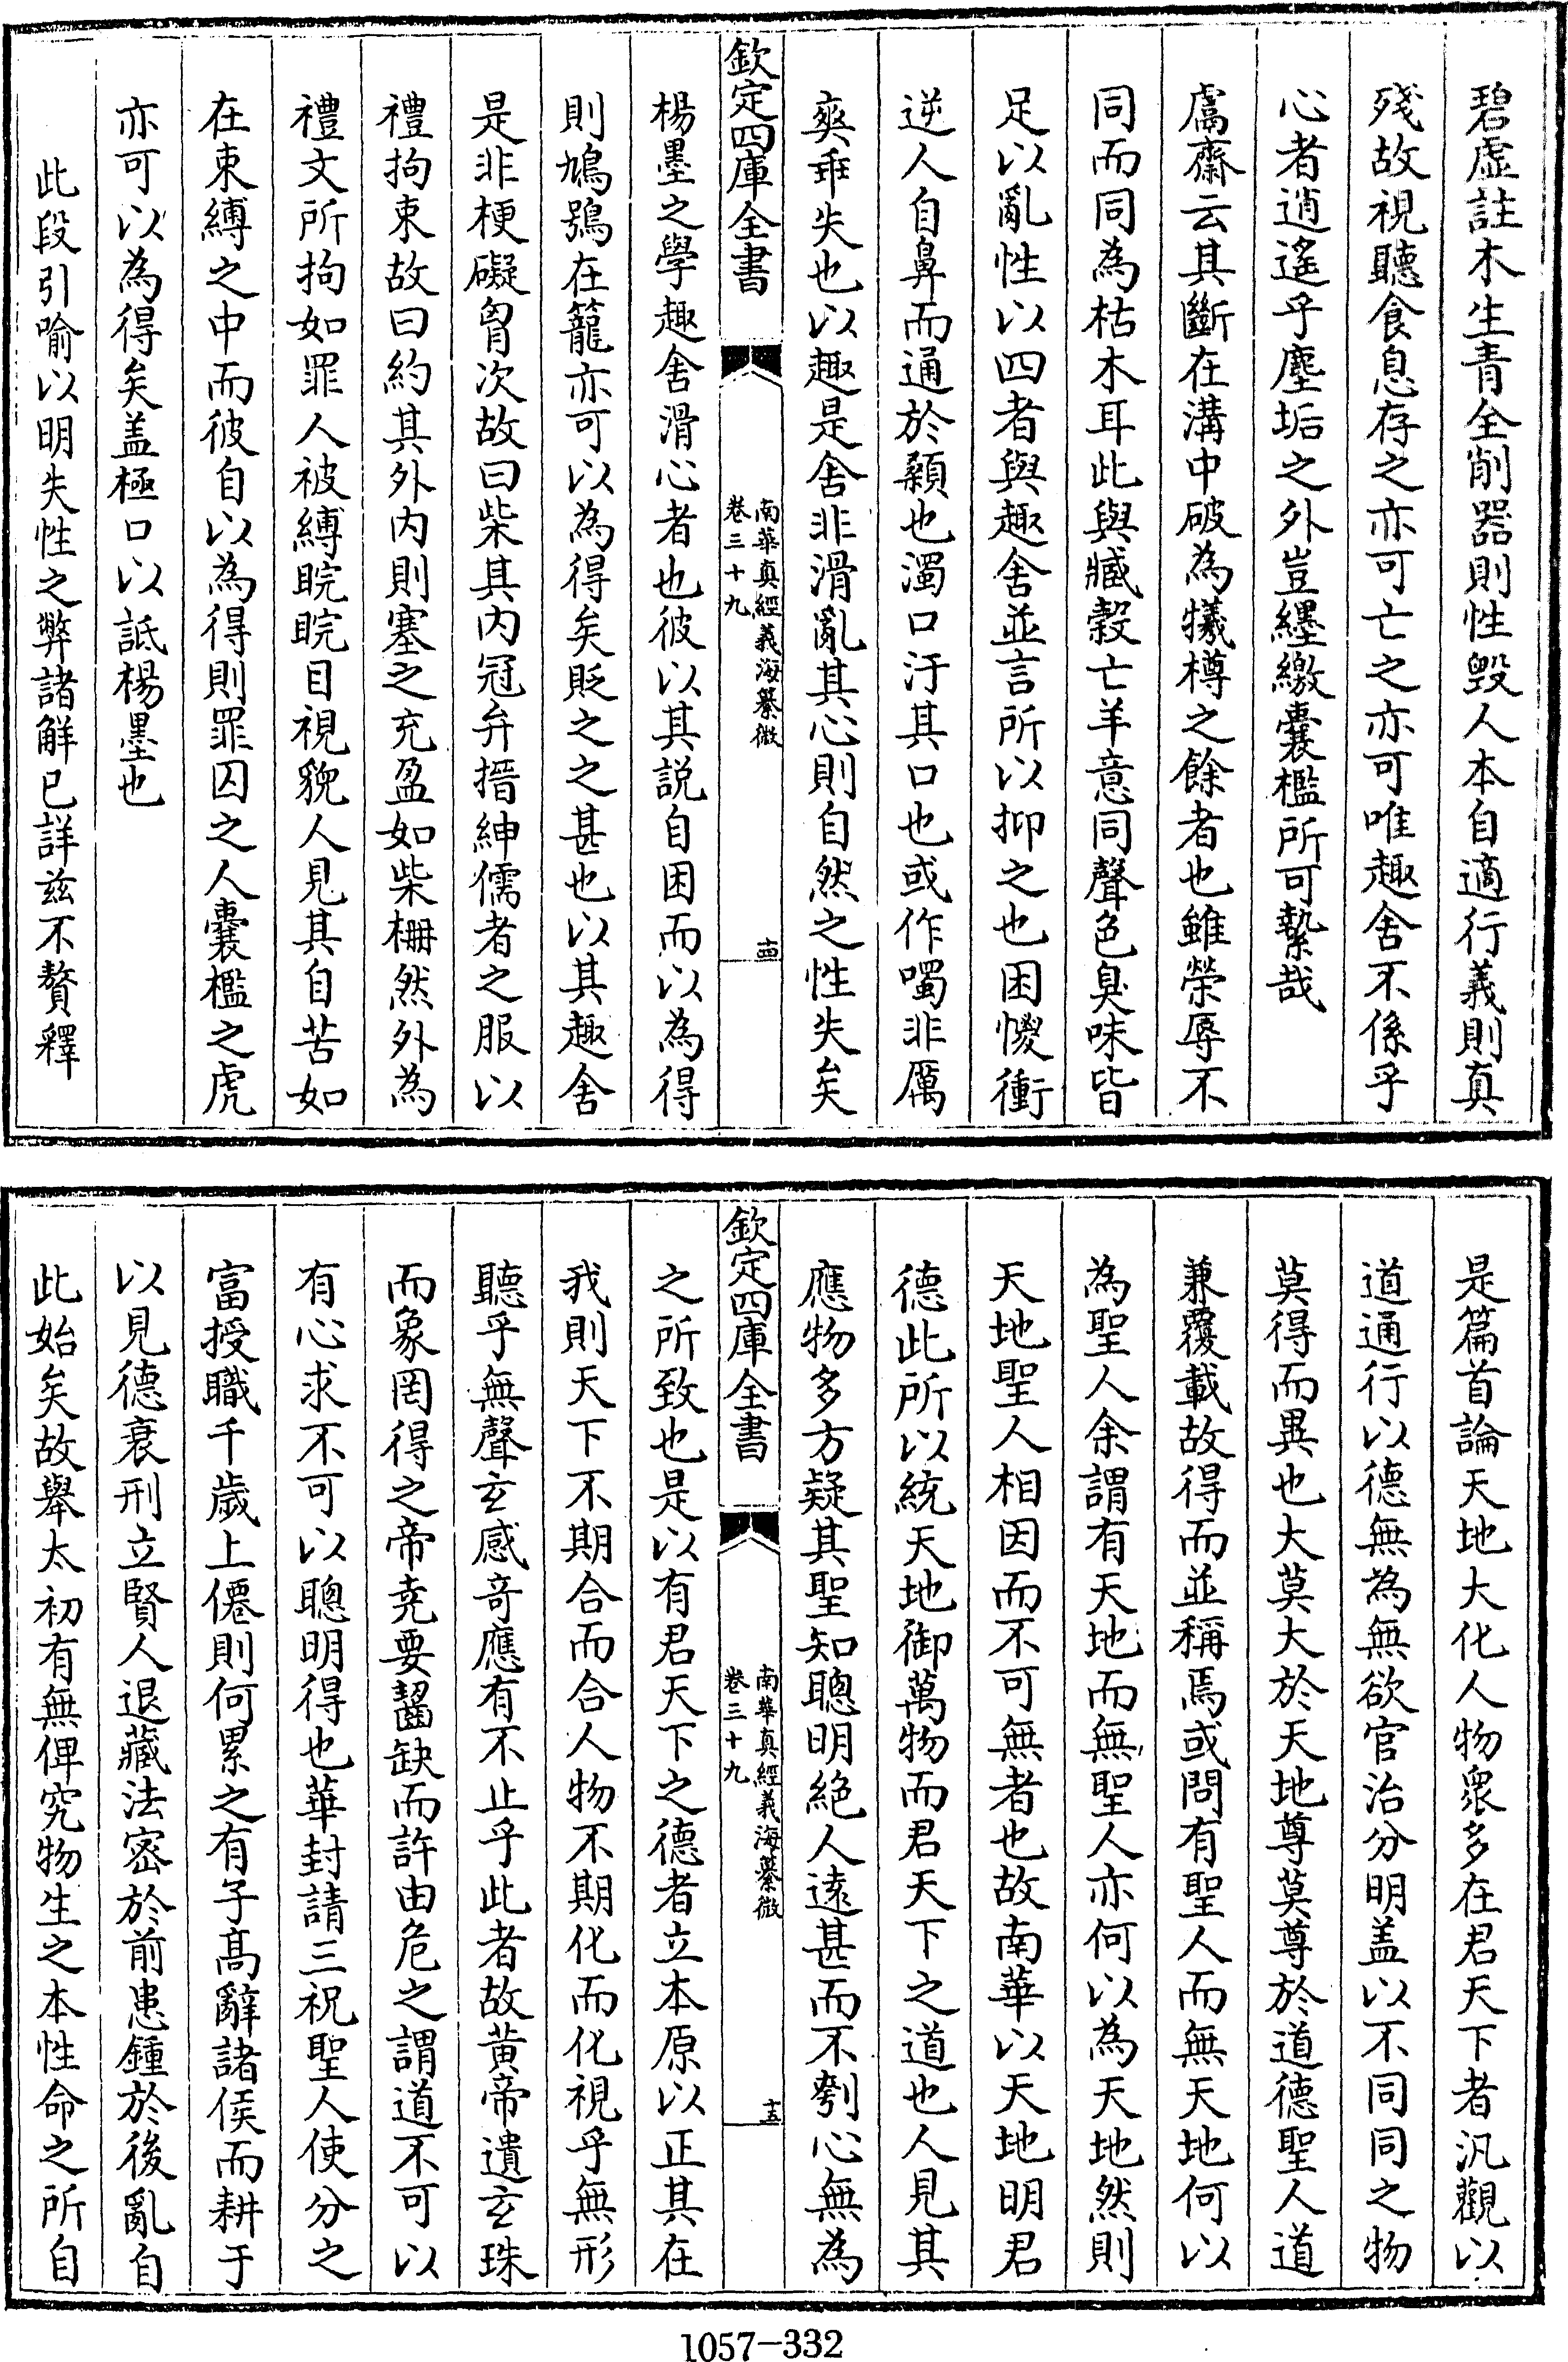 碧虚註木生青全削器則性毁人本自適行義則真
殘故視聽食息存之亦可亡之亦可唯趣舍不係乎
心者逍遙乎塵垢之外豈纆繳囊檻所可縶哉
鬳齋云其斷在溝中破為犧樽之餘者也雖榮辱不
同而同為枯木耳此與臧穀亡羊意同聲色臭味皆
足以亂性以四者與趣舍並言所以抑之也困惾衝
逆人自鼻而通於顙也濁口汙其口也或作噣非厲
爽乖失也以趣是舍非滑亂其心則自然之性失矣
欽定四庫全書
南華真經義海纂微
卷三十九
十四
楊墨之學趣舍滑心者也彼以其説自困而以為得
則鳩鴞在籠亦可以為得矣貶之之甚也以其趣舍
是非梗礙胷次故曰柴其内冠弁搢紳儒者之服以
禮拘束故曰約其外内則塞之充盈如柴柵然外為
禮文所拘如罪人被縛睆睆目視貌人見其自苦如
在束縛之中而彼自以為得則罪囚之人囊檻之虎
亦可以為得矣盖極口以詆楊墨也
此段引喻以明失性之弊諸解已詳兹不贅釋
是篇首論天地大化人物衆多在君天下者汎觀以
道通行以德無為無欲官治分明盖以不同同之物
莫得而異也大莫大於天地尊莫尊於道德聖人道
兼覆載故得而並稱焉或問有聖人而無天地何以
為聖人余謂有天地而無聖人亦何以為天地然則
天地聖人相因而不可無者也故南華以天地明君
德此所以統天地御萬物而君天下之道也人見其
應物多方疑其聖知聰明絶人逺甚而不刳心無為
欽定四庫全書
南華真經義海纂微
卷三十九
十五
之所致也是以有君天下之德者立本原以正其在
我則天下不期合而合人物不期化而化視乎無形
聽乎無聲玄感竒應有不止乎此者故黄帝遺玄珠
而象罔得之帝堯要齧缺而許由危之謂道不可以
有心求不可以聰明得也華封請三祝聖人使分之
富授職千歲上僊則何累之有子髙辭諸侯而耕于
以見德衰刑立賢人退藏法宻於前患鍾於後亂自
此始矣故舉太初有無俾究物生之本性命之所自
1057-332